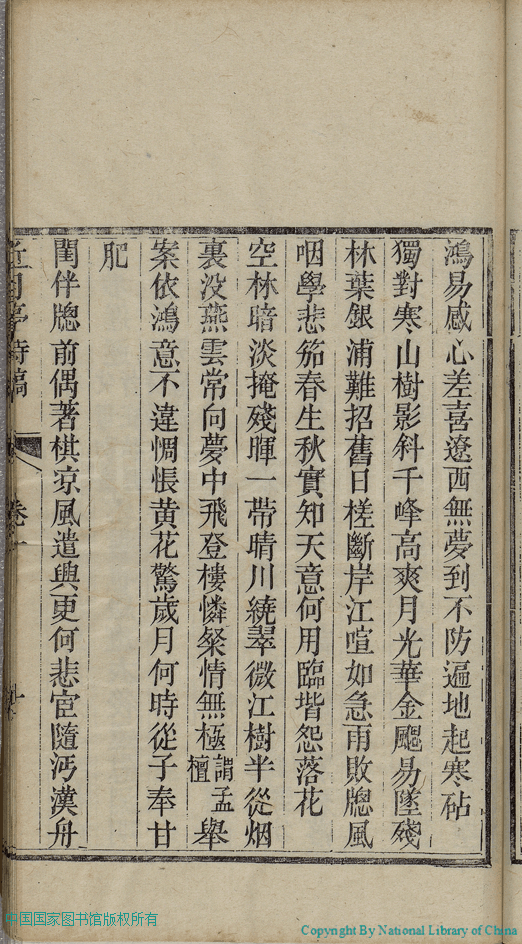 鴻易感心差喜遼西無夢到不防遍地起寒砧
獨對寒山樹影斜千峰高爽月光華金颸易墜殘
林葉銀浦難招舊日槎斷岸江喧如急雨敗牕風
咽學悲笳春生秋實知天意何用臨堦怨落花
空林暗淡掩殘暉一帶晴川繞翠微江樹半從烟
裏没燕雲常向夢中飛登樓憐粲情無極謂孟檀舉
案依鴻意不違惆悵黄花驚歲月何時從子奉甘
肥
閨伴牕前偶著棋凉風遣興更何悲宦隨沔漢舟
詩稿
卷一
中国国家图书馆版权所有
Copyright By National Library of China